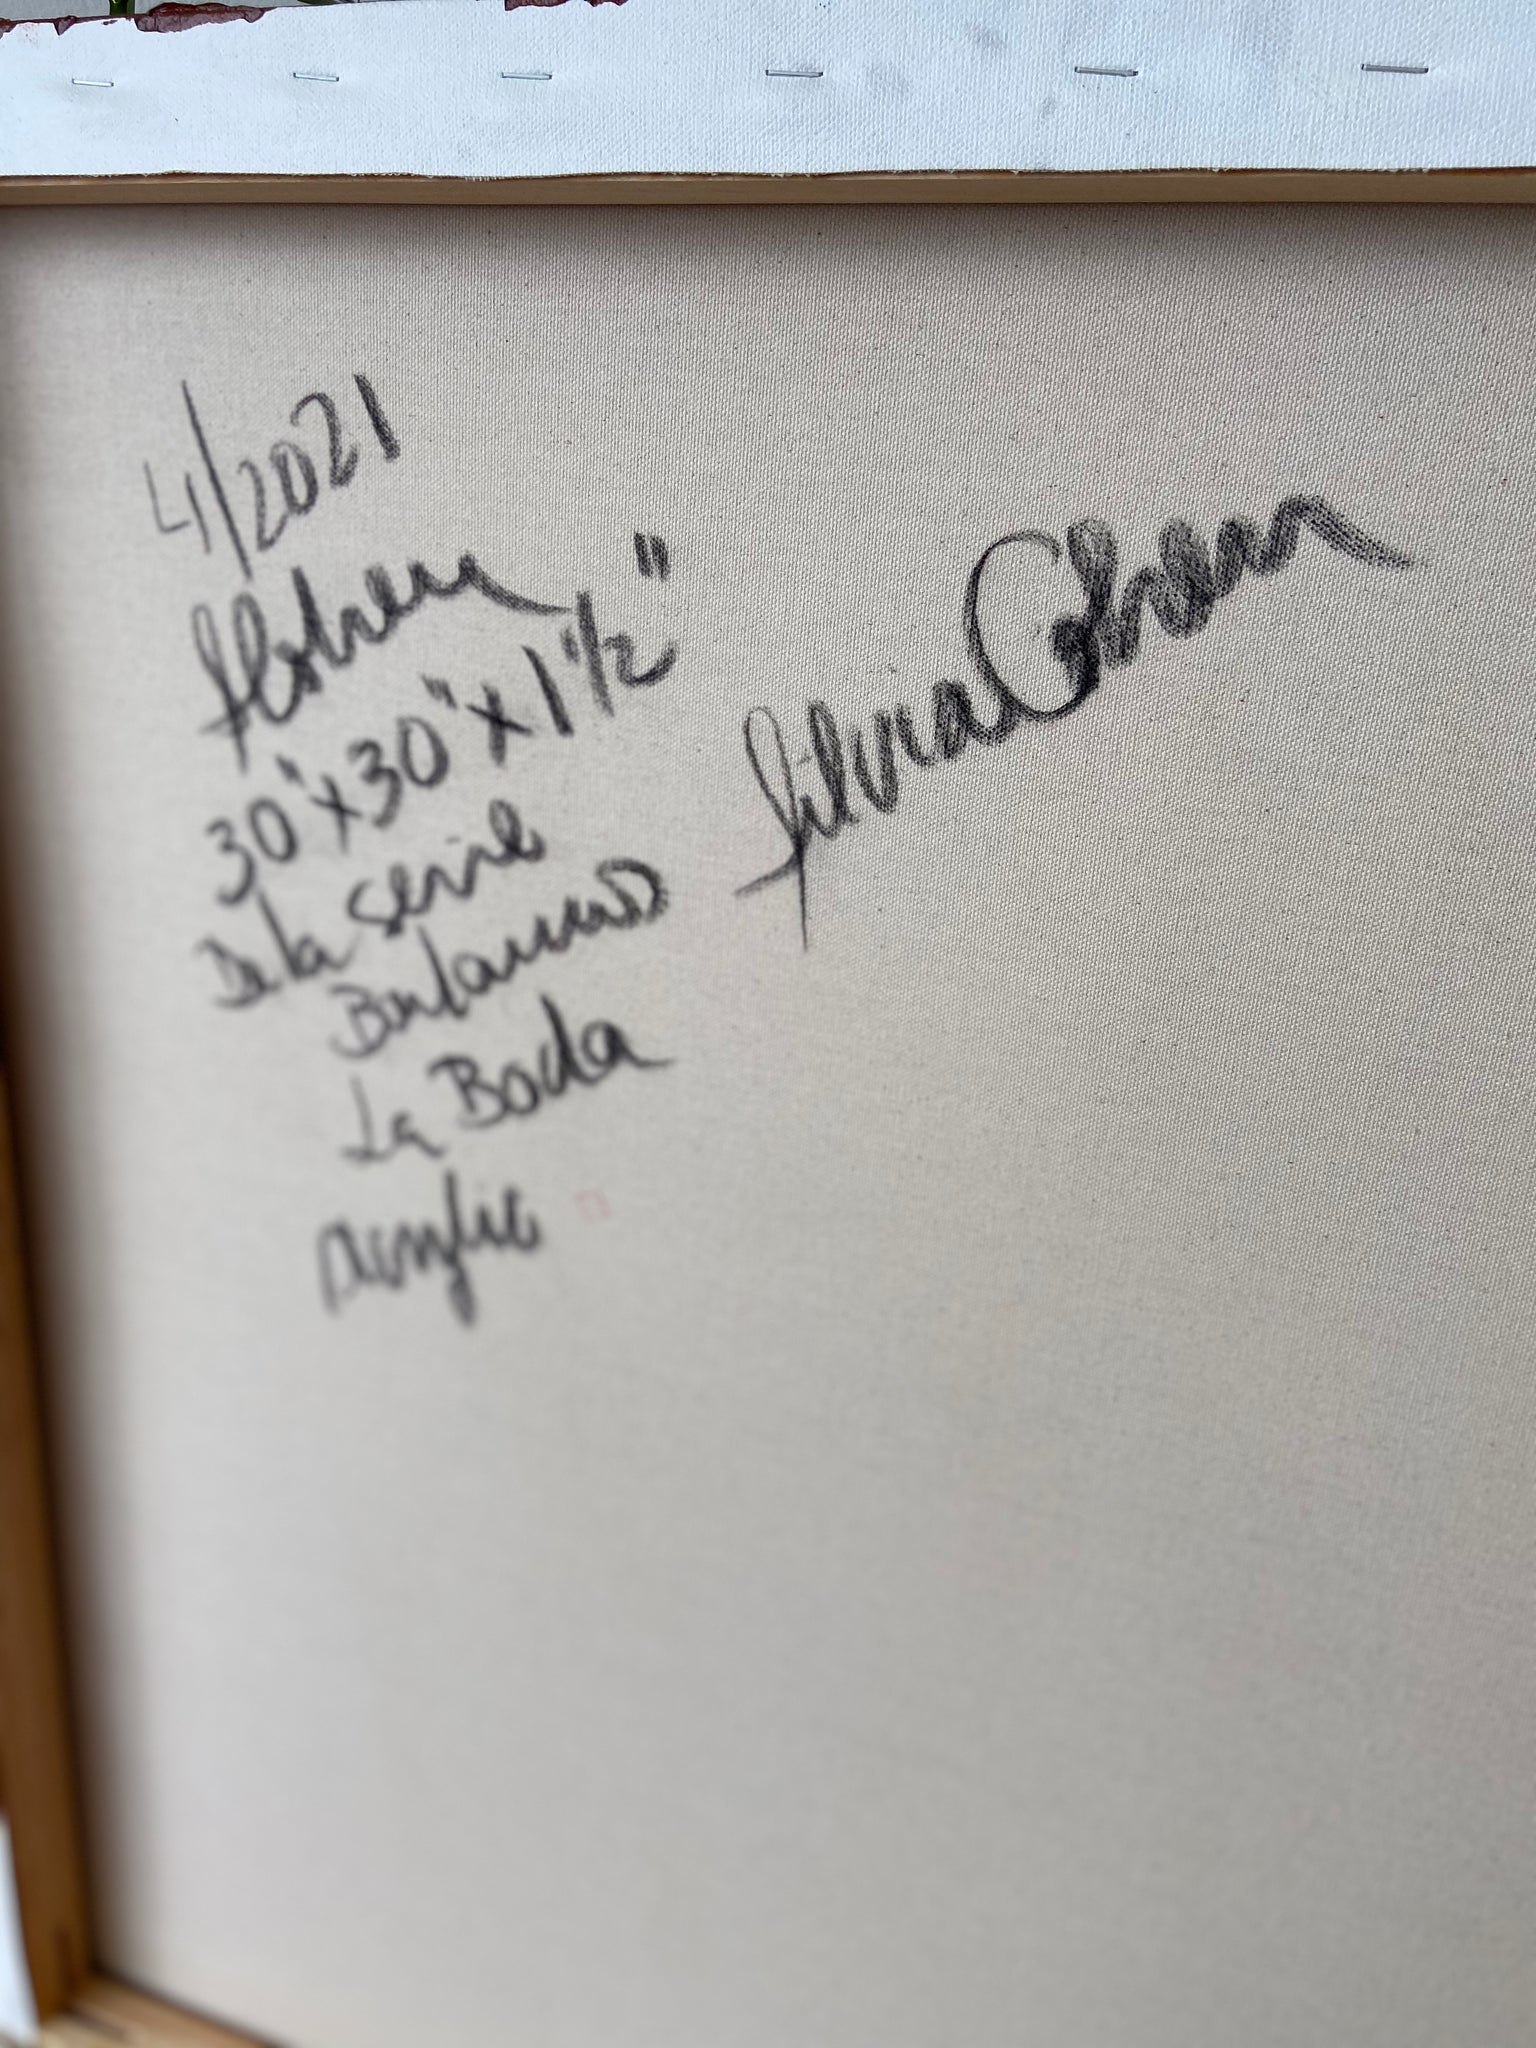 4/2021
SCohen
30"x30"x1 1/2"
De la serie
La Boda
Acrylic
Silvia Cohen